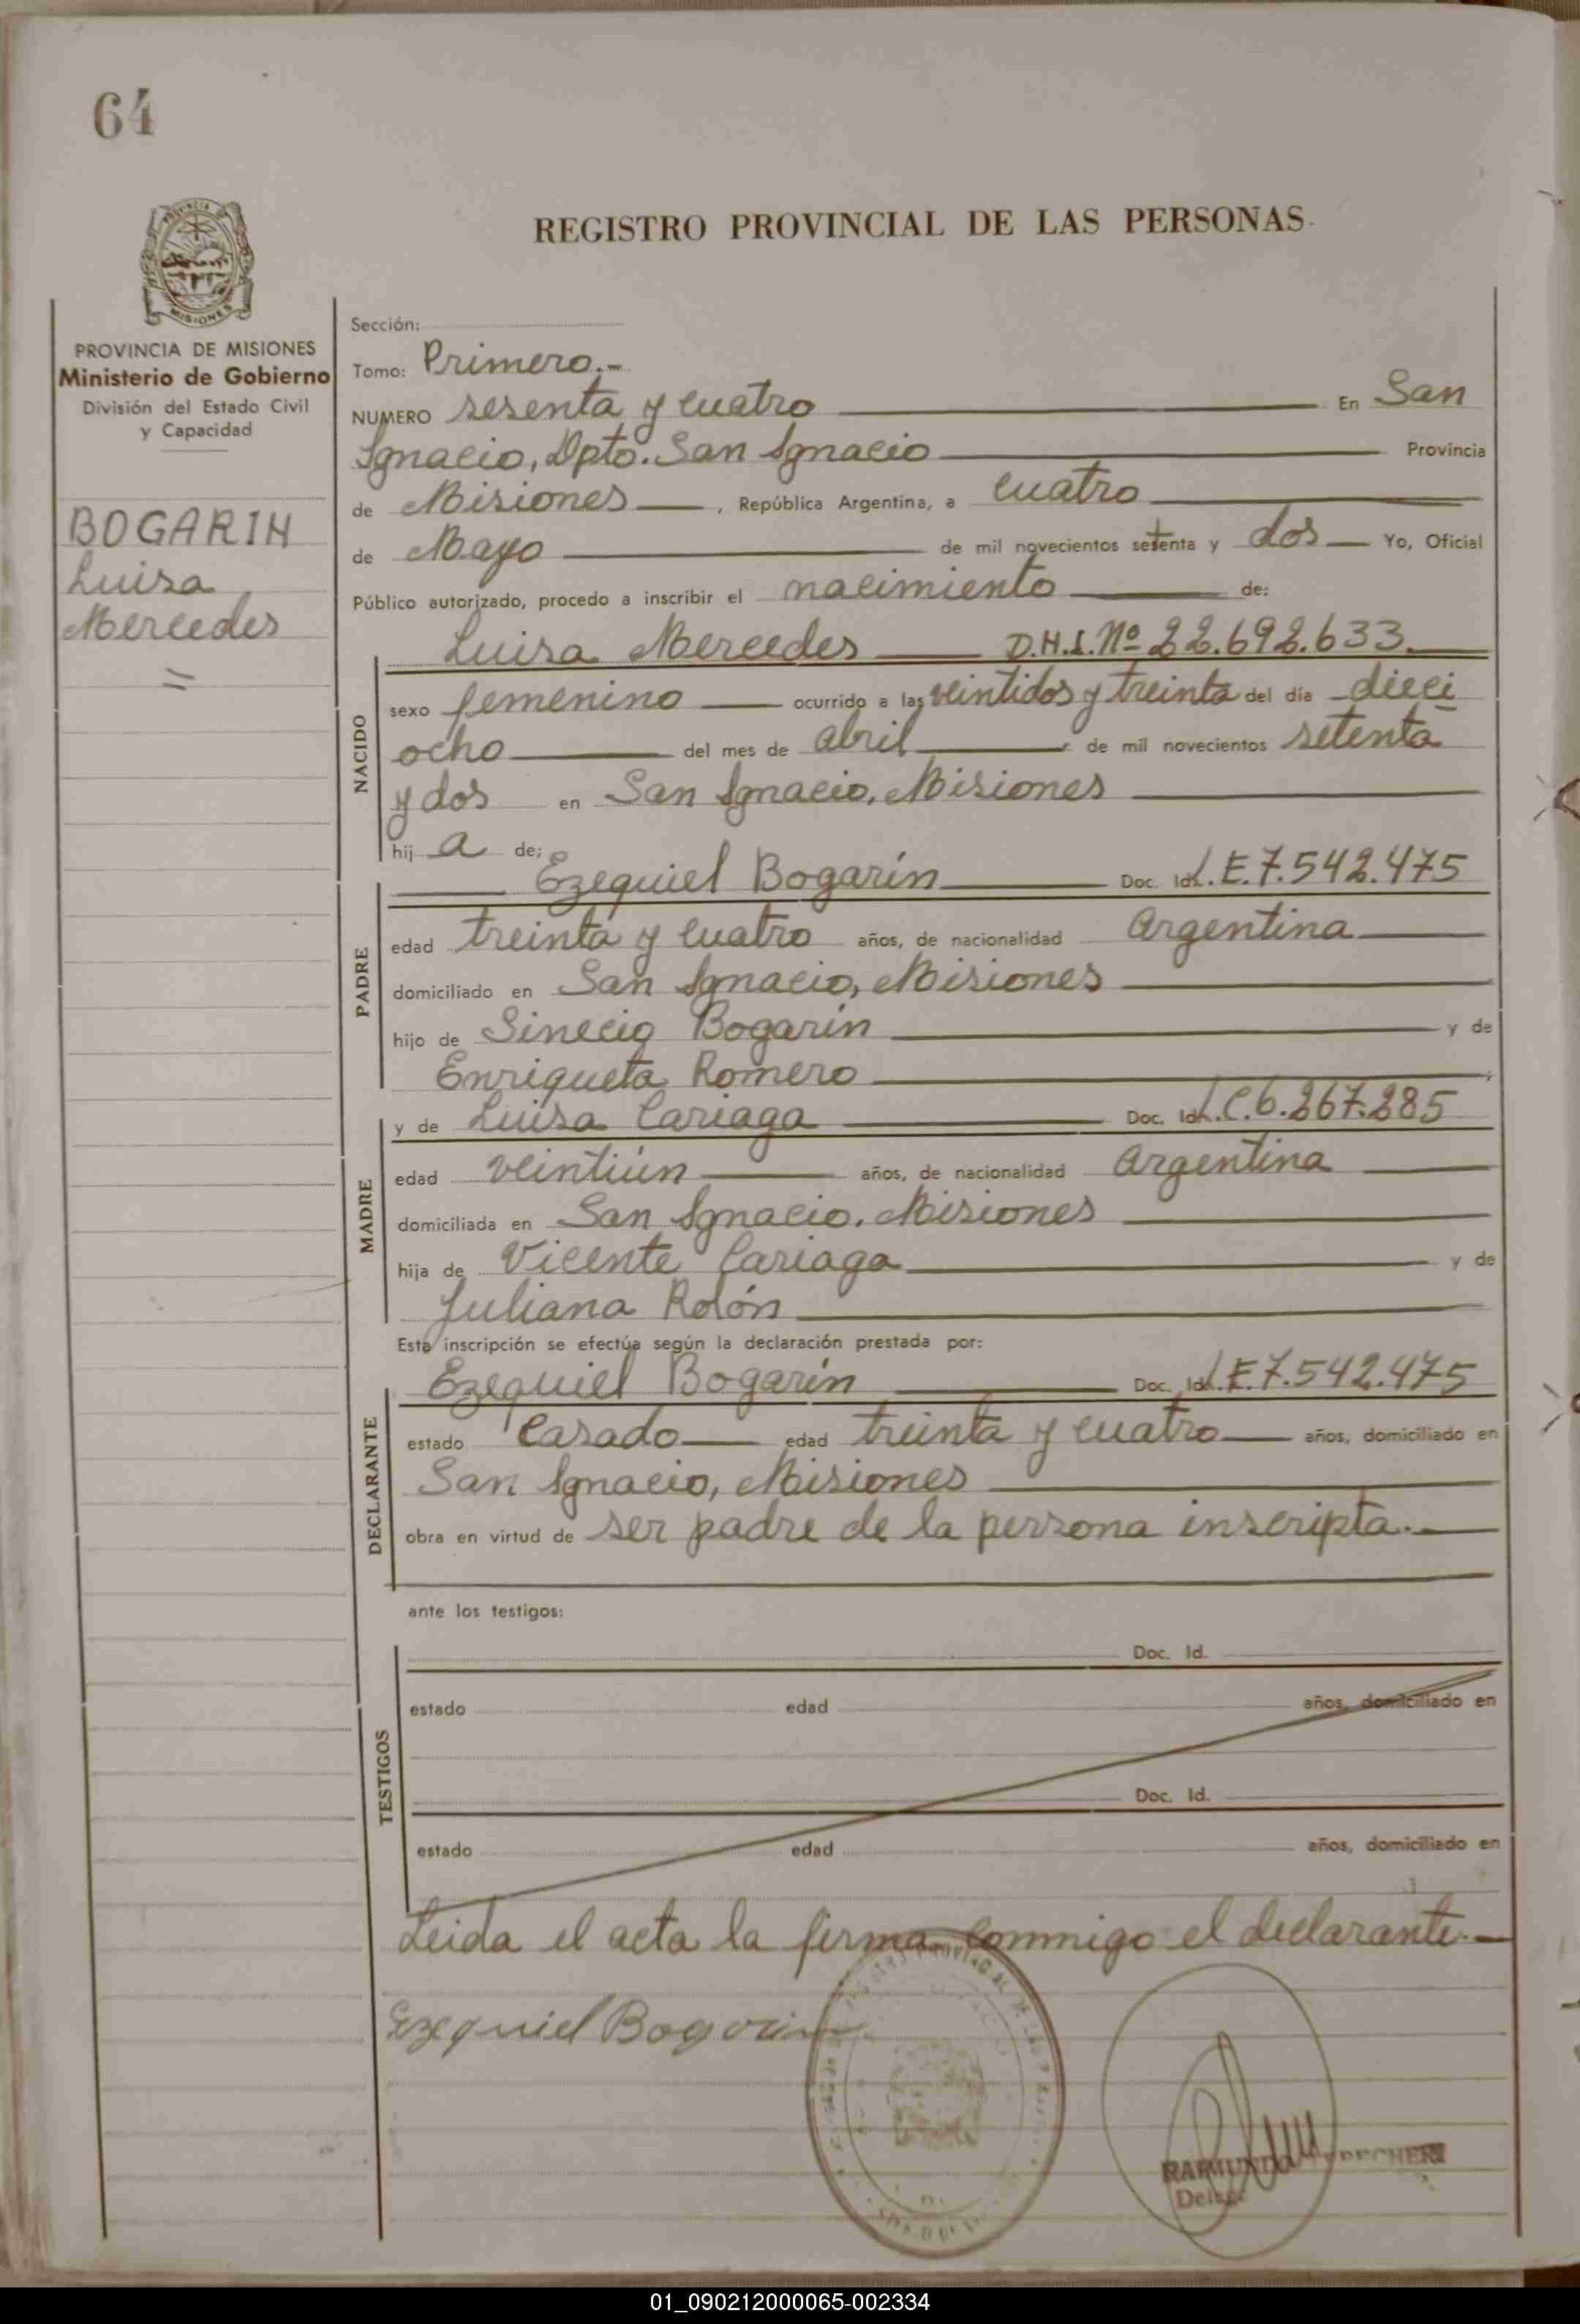 64
REGISTRO PROVINCIAL DE LAS PERSONAS
MISIONES
PROVINCIA DE MISIONES
Ministerio de Gobierno
División del Estado Civil
y Capacidad
BOGARIN
Luisa
Mercedes
=
Sección:
Tomo: Primero.-
NUMERO sesenta y cuatro En San
Ignacio, Dpto. San Ignacio Provincia
de Misiones, República Argentina, a cuatro
de Mayo de mil novecientos setenta y dos Yo, Oficial
Público autorizado, procedo a inscribir el nacimiento de:
Luisa Mercedes D.N.I. Nº 22.692.633.
NACIDO
sexo femenino ocurrido a las veintidos y treinta del día dieci
ocho del mes de abril de mil novecientos setenta
y dos en San Ignacio, Misiones
hij a de;
Ezequiel Bogarín Doc. Id. L.E.7.542.475
PADRE
edad treinta y cuatro años, de nacionalidad Argentina
domiciliado en San Ignacio, Misiones
hijo de Sinecio Bogarín y de
Enriqueta Romero
y de Luisa Cariaga Doc. Id. L.C.6.267.285
MADRE
edad veintiún años, de nacionalidad Argentina
domiciliada en San Ignacio, Misiones
hija de Vicente Cariaga y de
Juliana Rolón
Esta inscripción se efectúa según la declaración prestada por:
Ezequiel Bogarín Doc. Id. L.E.7.542.475
DECLARANTE
estado Casado edad treinta y cuatro años, domiciliado en
San Ignacio, Misiones
obra en virtud de ser padre de la persona inscripta.-
ante los testigos:
TESTIGOS
Doc. Id.
estado edad años, domiciliado en
Doc. Id.
estado edad años, domiciliado en
Leida el acta la firma conmigo el declarante.-
Ezequiel Bogarin
RAIMUNDO
01_090212000065-002334